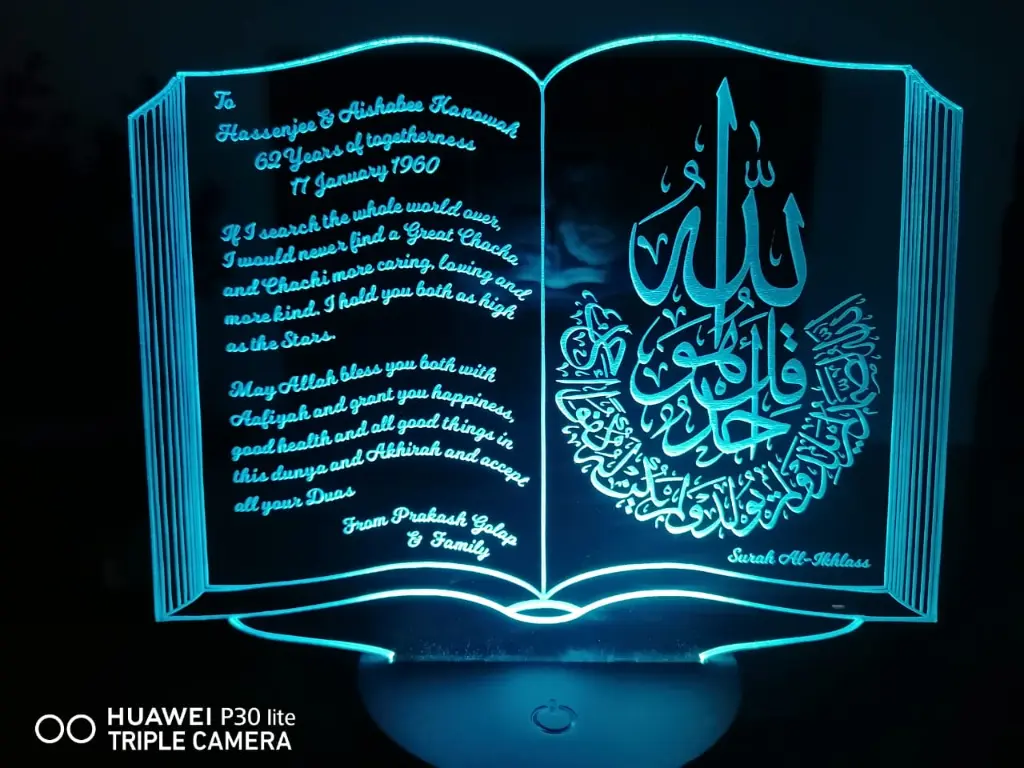 To
Hassenjee & Aishabee Kanowah
62 Years of togetherness
17 January 1960
If I search the whole world over,
I would never find a Great Chacha
and Chachi more caring, loving and
more kind. I hold you both as high
as the Stars.
May Allah bless you both with
Aafiyah and grant you happiness,
good health and all good things in
this dunya and Akhirah and accept
all your Duas
From Prakash Golap
& Family
الله
قل هو
أحد
Surah Al-Ikhlass
HUAWEI P30 lite
TRIPLE CAMERA